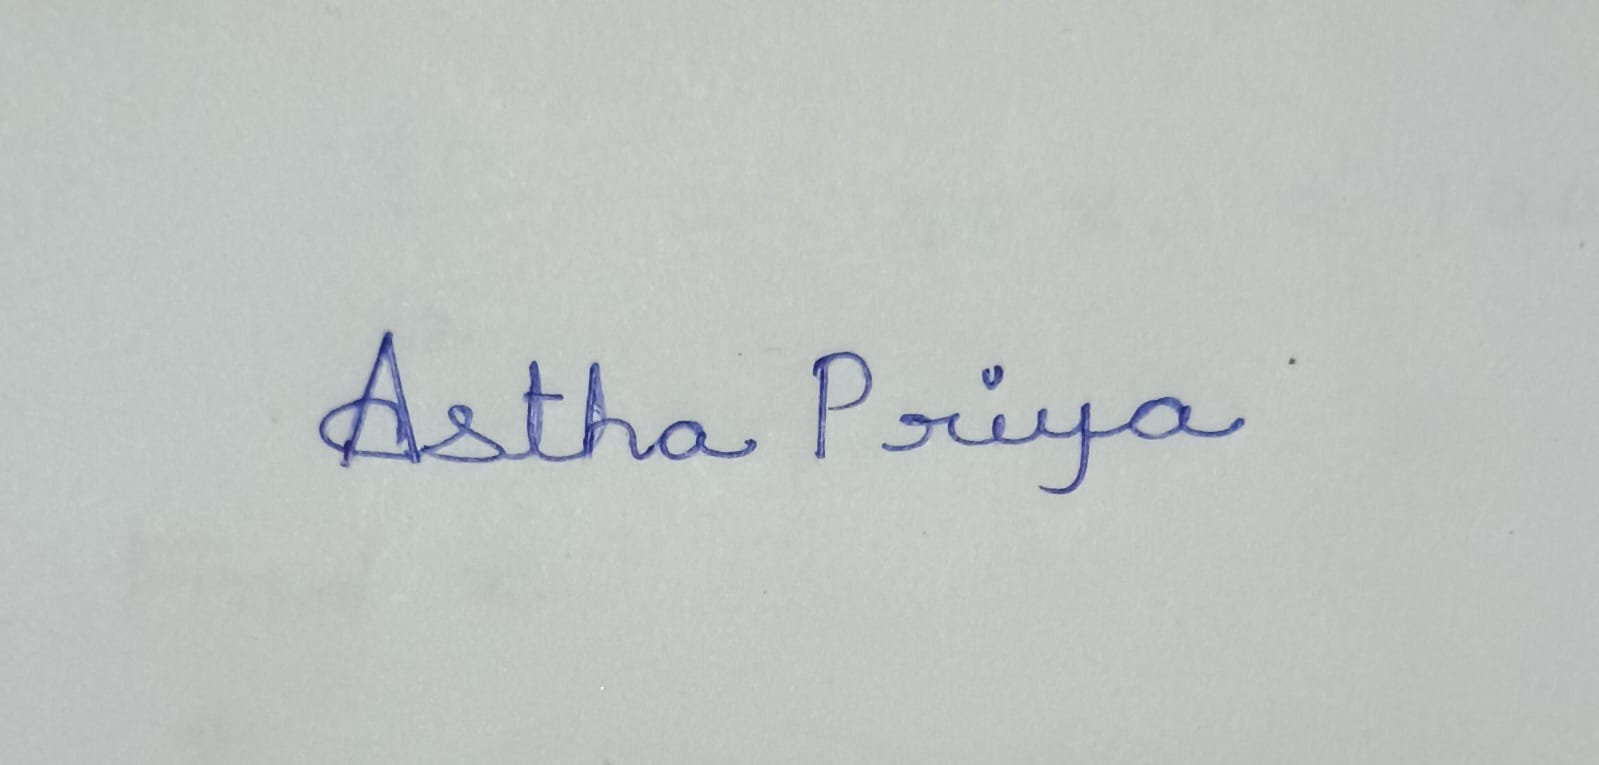 Astha Priya